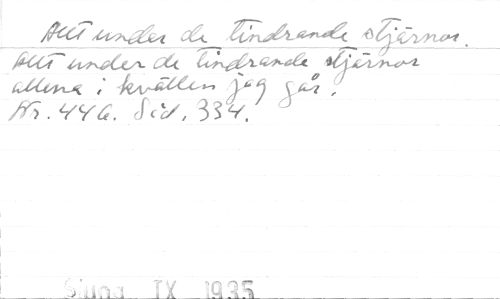 Allt under de tindrande stjärnor.
Allt under de tindrande stjärnor
allena i kvällen jag går.
Nr. 446. Sid. 334.
Sjung IX 1935